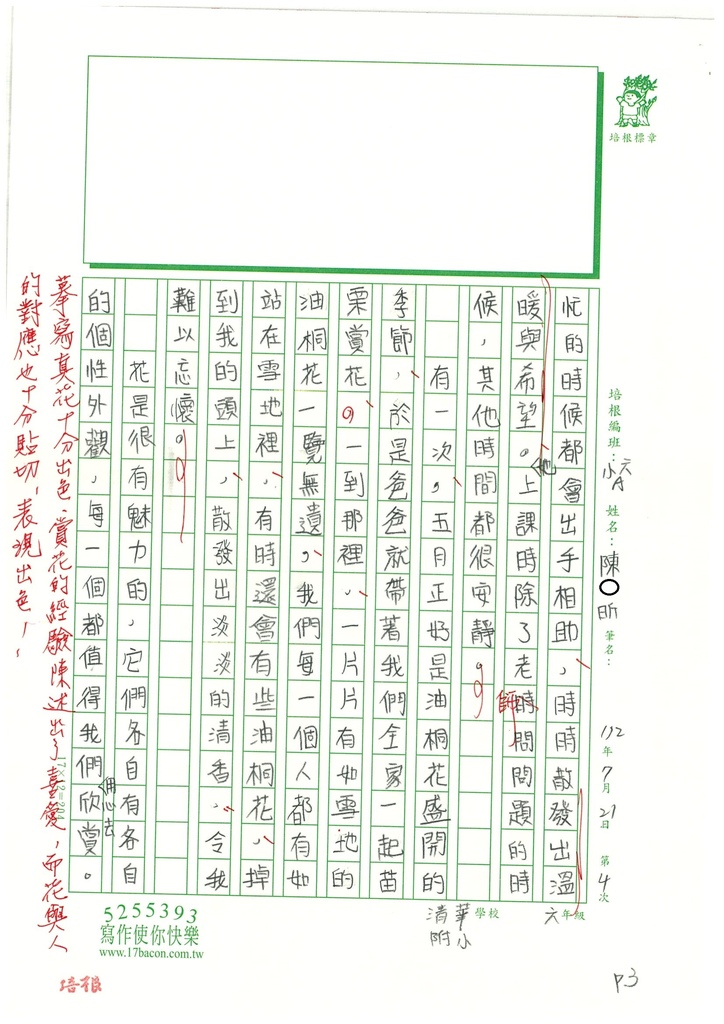 培根標章
培根編班：小六A
姓名：陳〇昕
筆名：
112年7月21日 第4次
忙的時候都會出手相助，時時散發出溫
暖與希望。他上課時除了老師時問問題的時
候，其他時間都很安靜。
有一次，五月正好是油桐花盛開的
季節，於是爸爸就帶著我們全家一起苗
栗賞花。一到那裡，一片片有如雪地的
油桐花一覽無遺，我們每一個人都有如
站在雪地裡，有時還會有些油桐花，掉
到我的頭上，散發出淡淡的清香，令我
難以忘懷。
花是很有魅力的，它們各自有各自
的個性外觀，每一個都值得我們用心去欣賞。
摹寫真花十分出色、賞花的經驗陳述出了喜愛，而花與人
的對應也十分貼切，表現出色！
17×12=204
5255393
寫作使你快樂
www.17bacon.com.tw
清華附小 學校 六年級
培根
P3